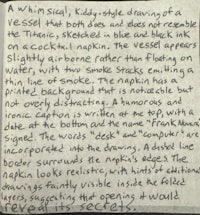 A whimsical, kiddy-style drawing of a
vessel that both does and does not resemble
the Titanic, sketched in blue and black ink
on a cocktail napkin. The vessel appears
slightly airborne rather than floating on
water, with two smoke stacks emitting a
thin line of smoke. The napkin has a
printed background that is noticeable but
not overly distracting. A humorous and
ironic caption is written at the top, with a
date at the bottom and the name "Frank
signed. The words "desk" and "computer" are
incorporated into the drawing. A dashed line
border surrounds the napkin's edges. The
napkin looks realistic, with hints of additional
drawings faintly visible inside the folded
layers, suggesting that opening it would
reveal its secrets.